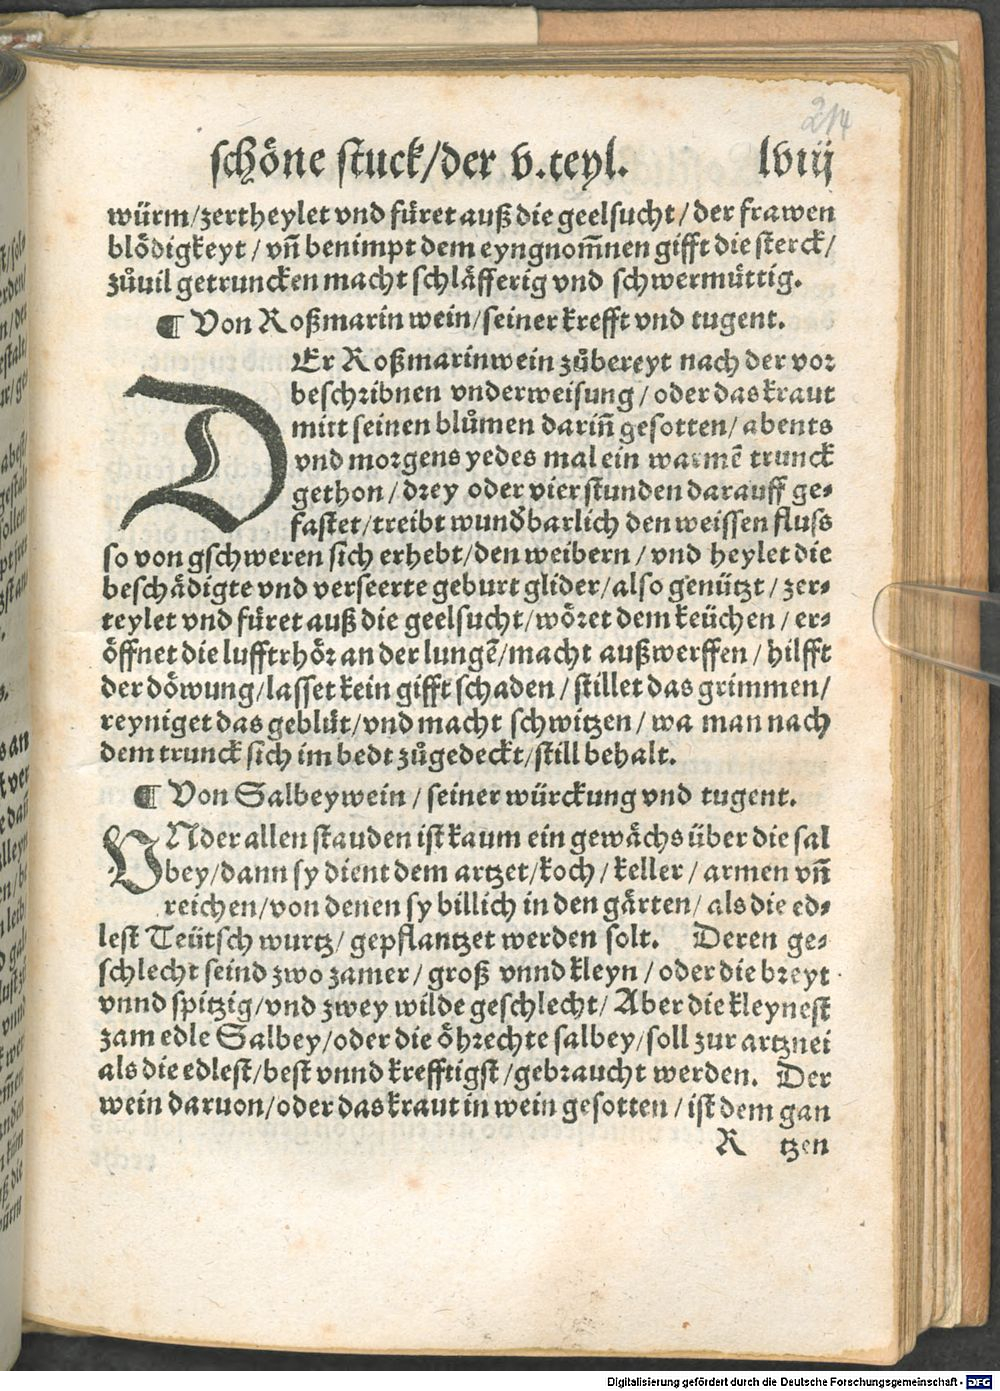 214
schöne stuck/der v.teyl. lviij
würm/zertheylet vnd füret auß die geelsucht/der frawen
blödigkeyt/vñ benimpt dem eyngnom̃nen gifft die sterck/
zůuil getruncken macht schläfferig vnd schwermüttig.
¶ Von Roßmarin wein/seiner krefft vnd tugent.
DEr Roßmarinwein zůbereyt nach der vor
beschribnen vnderweisung/oder das kraut
mitt seinen blůmen dariñ gesotten/abents
vnd morgens yedes mal ein warmẽ trunck
gethon/drey oder vier stunden darauff ge-
fastet/treibt wund̃barlich den weissen fluss
so von gschweren sich erhebt/den weibern/vnd heylet die
beschädigte vnd verseerte geburt glider/also genützt/zer-
teylet vnd füret auß die geelsucht/wöret dem keüchen/er-
öffnet die lufftrhör an der lungẽ/macht außwerffen/hilfft
der döwung/lasset kein gifft schaden/stillet das grimmen/
reyniget das geblüt/vnd macht schwitzen/wa man nach
dem trunck sich im bedt zůgedeckt/still behalt.
¶ Von Salbeywein/seiner würckung vnd tugent.
VNder allen stauden ist kaum ein gewächs über die sal
bey/dann sy dient dem artzet/koch/keller/armen vñ
reichen/von denen sy billich in den gärten/als die ed-
lest Teütsch wurtz/gepflantzet werden solt. Deren ge-
schlecht seind zwo zamer/groß vnnd kleyn/oder die breyt
vnnd spitzig/vnd zwey wilde geschlecht/Aber die kleynest
zam edle Salbey/oder die öhrechte salbey/soll zur artznei
als die edlest/best vnnd krefftigst/gebraucht werden. Der
wein daruon/oder das kraut in wein gesotten/ist dem gan
R tzen
Digitalisierung gefördert durch die Deutsche Forschungsgemeinschaft - DFG